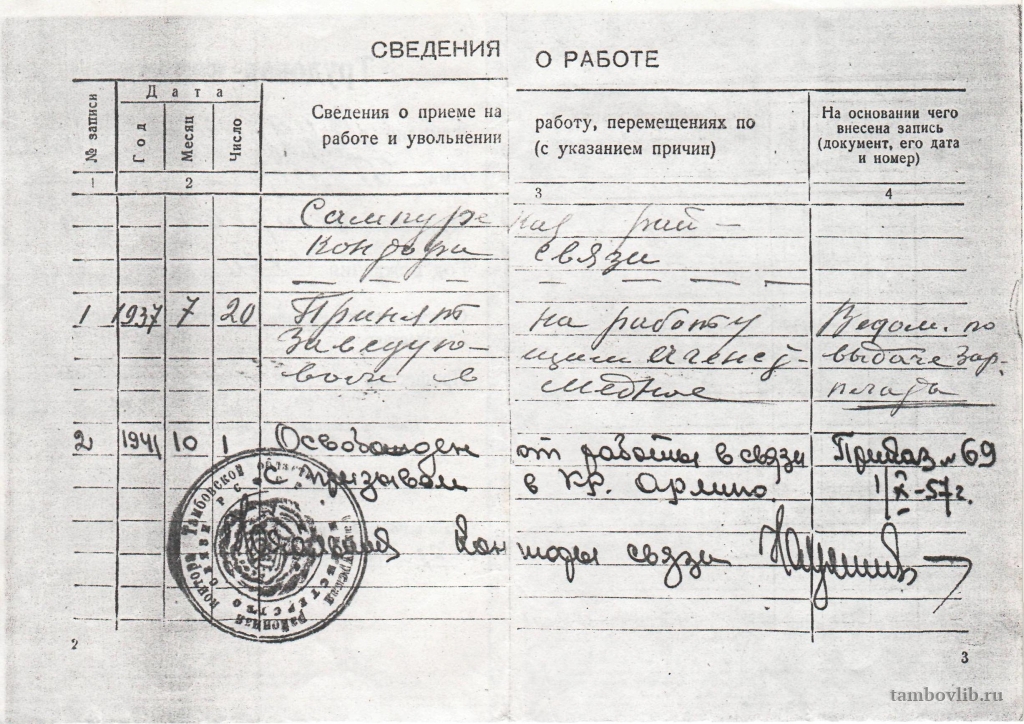 СВЕДЕНИЯ О РАБОТЕ
№ записи
Дата
Год
Месяц
Число
Сведения о приеме на работу, перемещениях по
работе и увольнении (с указанием причин)
На основании чего
внесена запись
(документ, его дата
и номер)
1 2 3 4
Сампурская рай-
контора связи
1 1937 7 20 Принят на работу Ведом. по
Заведующим агенс выдаче зар.
вом в Медное платы
2 1941 10 1 Освобожден от работы в связи Приказ № 69
с призывом в Кр. Армию. 1/X-57г.
Конторы связи
районная контора связи Тамбовской области
Министерство
2
3
tambovlib.ru